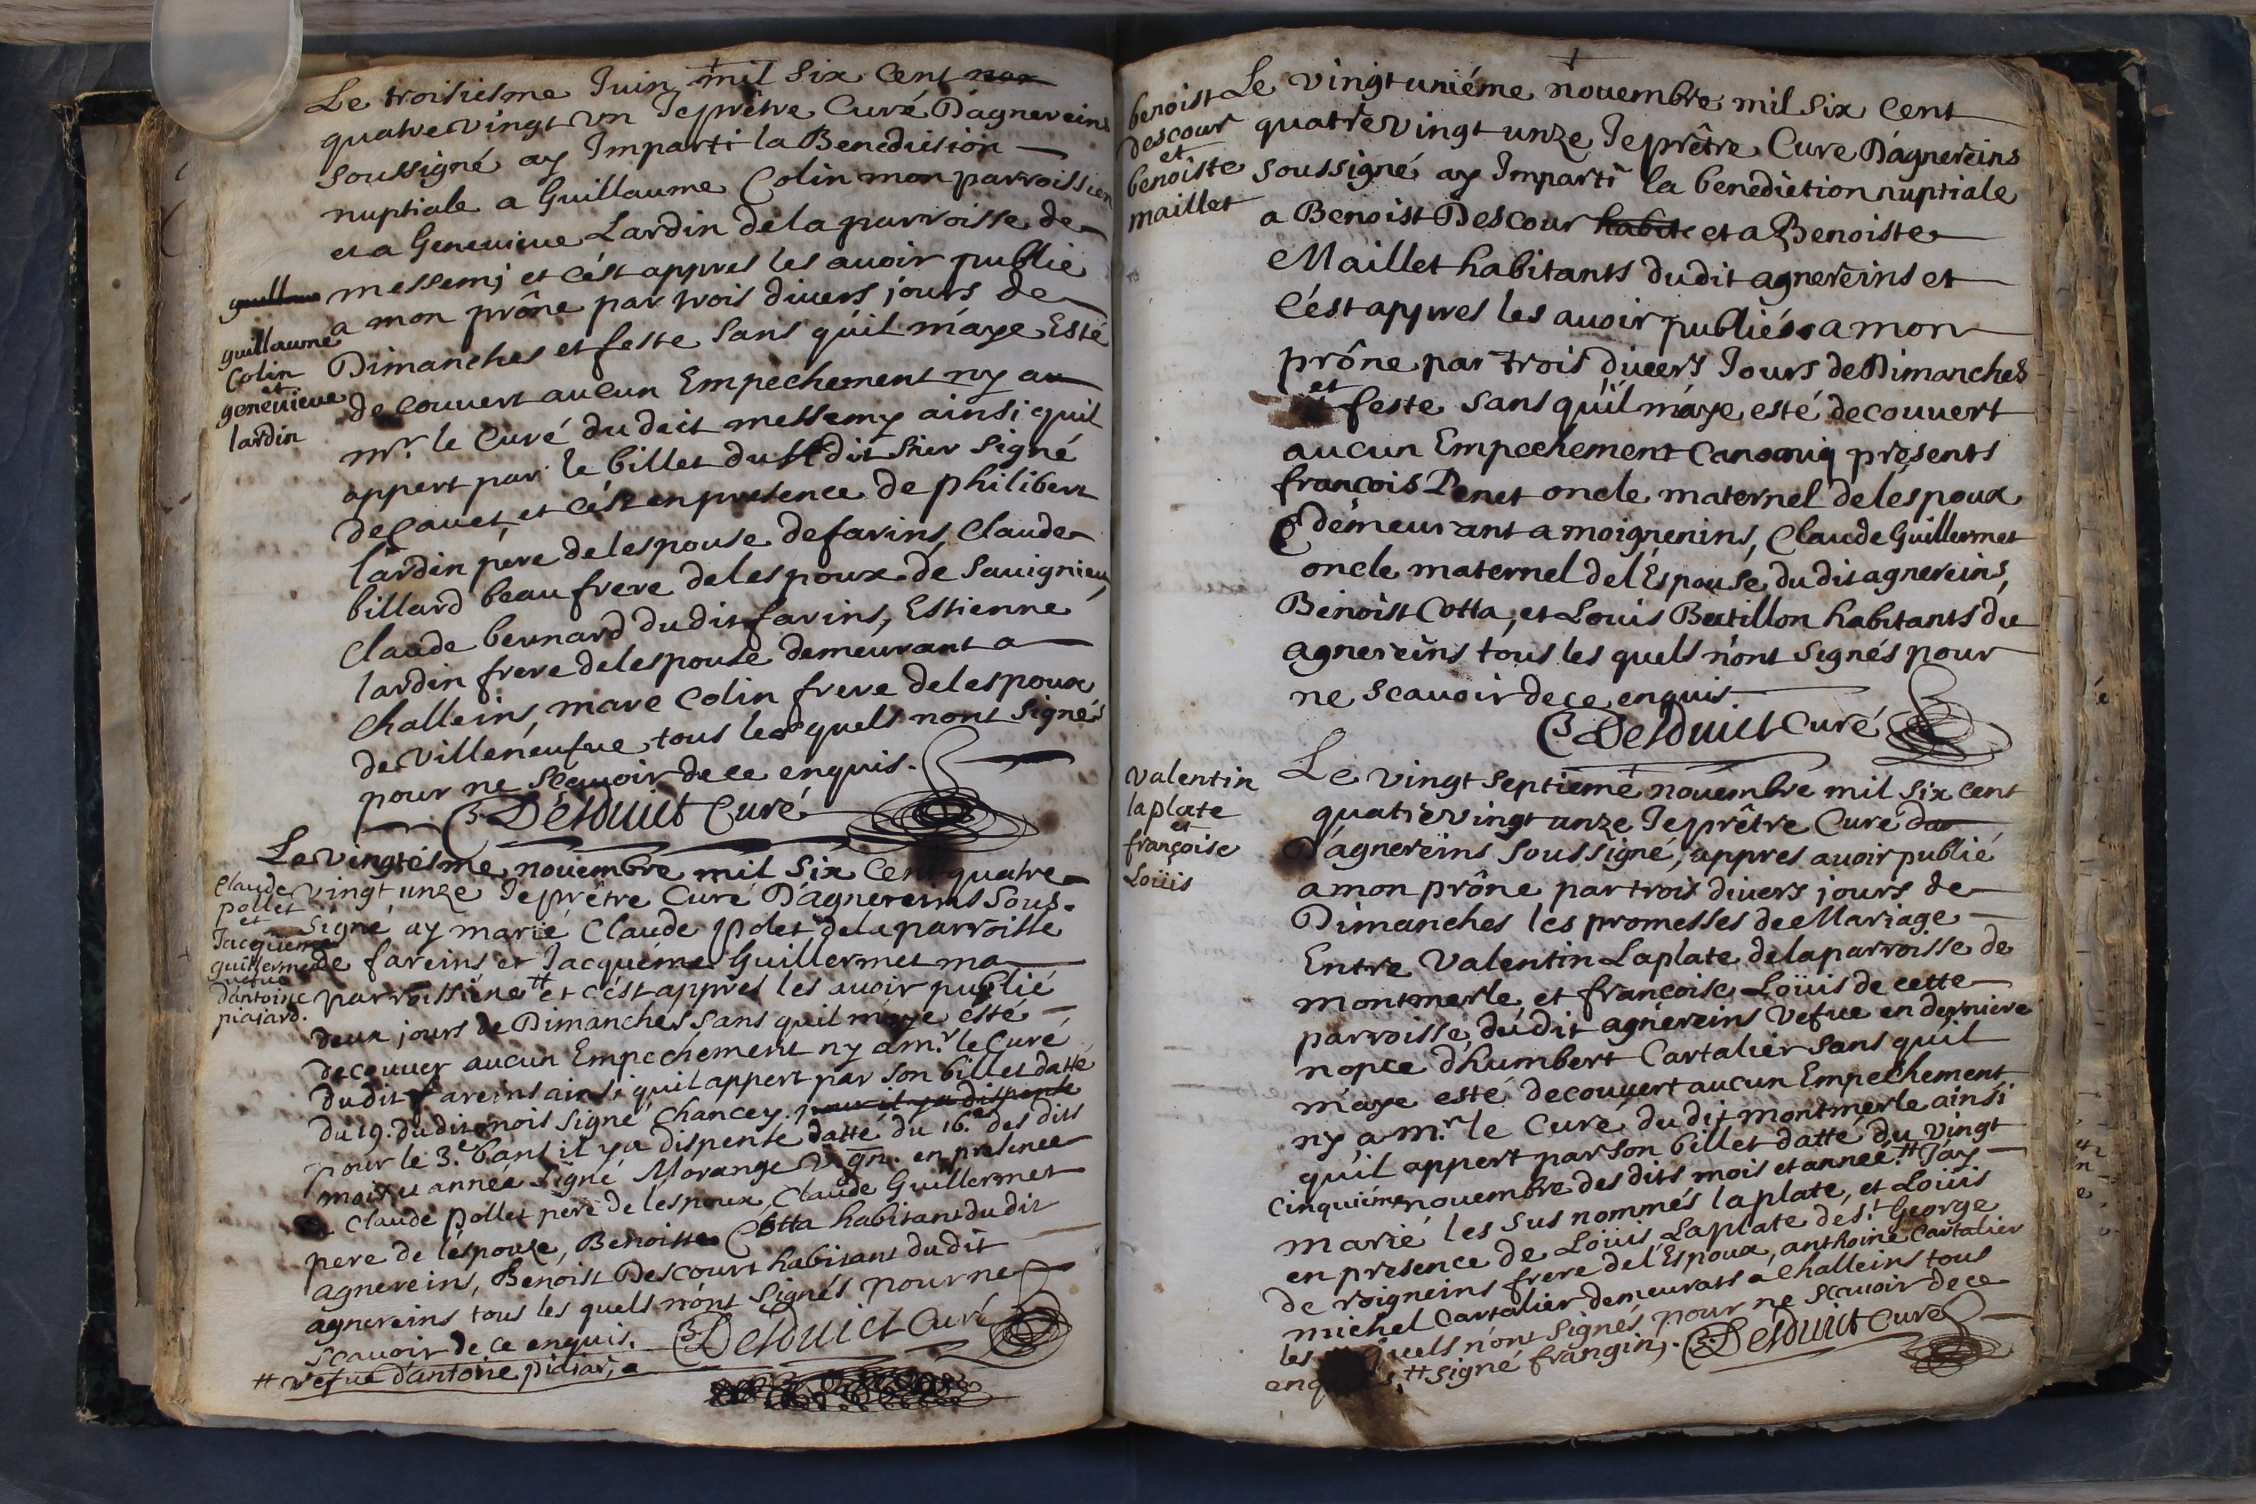 Le troisiesme Juin mil six cent
quatrevingt un Je prêtre Curé Dagnereins
soussigné ay Imparti la Benediction
nuptiale a Guillaume Colin mon parroissien
et a Genevieue Lardin de la parroisse de
messemj et cést appres les auoir publié
a mon prône par trois diuers jours de
Dimanches et feste sans qu'il m'aye Esté
de couuert aucun Empechement ny au
mr. le Curé du dit messemy ainsi quil
appert par le billet du dit sier signé
decauet, et cést en presence de philibert
lardin père de lespouse de farins, Claude
billard beau frere de lespoux de Sauignieu,
Claude bernard du dit farins, Estienne
lardin frere de lespouse demeurant a
Challeins, marc Colin frere de lespoux
de Villeneufue, tous lesquels n'ont signés
pour ne sçauoir de ce enquis.
Desduict Curé
guillaume
Colin
et
geneuieue
lardin
Le vingtésme nouembre mil six Cent quatre
vingt unze Je prêtre Curé D'agnereins sous
signé ay marié Claude polet de la parroisse
de fareins et Jacquéme Guillermet ma
parroissiene # et cést appres les auoir publié
deux jours de Dimanches sans quil m'aye esté
decouuer aucun Empechement ny a mr. le Curé
du dit fareins ainsi quil appert par son billet datté
du 19. du dit mois signé Chancey. pour il y a dispense
pour le 3.e bans il y a dispense datté du 16.e des dits
mois et année signé Morange v. gn. en presence
Claude pollet pere de lespoux, Claude Guillermet
pere de l'espouse, Benoiste Cotta habitant du dit
agnereins, Benoist Descourt habitant du dit
agnereins tous les quels n'ont signés pour ne
scauoir de ce enquis. Desduict Curé
# vefue d'antoine piasard
Claude
pollet
et
Jacqueme
guillermet
vefue
d'antoine
piasard.
benoist
descour
et
benoiste
maillet
Le vingtuniéme nouembre mil six cent
quatrevingt unze Je prêtre Curé D'agnereins
soussigné ay Imparti la benediction nuptiale
a Benoist Descour habit et a Benoiste
Maillet habitants du dit agnereins et
C'ést appres les auoir publiés a mon
prône par trois diuers Jours de Dimanches
et feste sans qu'il m'aye esté decouuert
aucun Empechement Canoniq presents
françois Penet oncle maternel de léspoux
demeurant a moignenins, Claude Guillermet
oncle maternel de l'Espouse du dit agnereins,
Benoist Cotta, et Louis Butillon habitants du
agnereins tous les quels n'ont signés pour
ne scauoir de ce enquis.
Desduict Curé
valentin
laplate
et
françoise
Loüis
Le vingt septieme nouembre mil six cent
quatrevingt unze Je prêtre Curé
D'agnereins soussigné, appres auoir publié
a mon prône par trois diuers jours de
Dimanches les promesses de Mariage
Entre Valentin Laplate de la parroisse de
montmerle, et françoise Loüis de cette
parroisse du dit agnereins vefue en derniere
nopce d'humbert Cartalier sans quil
m'aye esté decouuert aucun Empechement
ny a mr. le Curé du dit montmerle ainsi
qu'il appert par son billet datté du vingt
cinquiéme nouembre des dits mois et année # J'ay
marié les sus nommés laplate, et Loüis
en presence de Loüis Laplate de st George
de roigneins frere de l'Espoux, anthoine Cartalier
michel Cartalier demeurats a Challeins tous
lesquels n'ont signés pour ne scauoir de ce
enquis, # signé frangin,. Desduict Curé